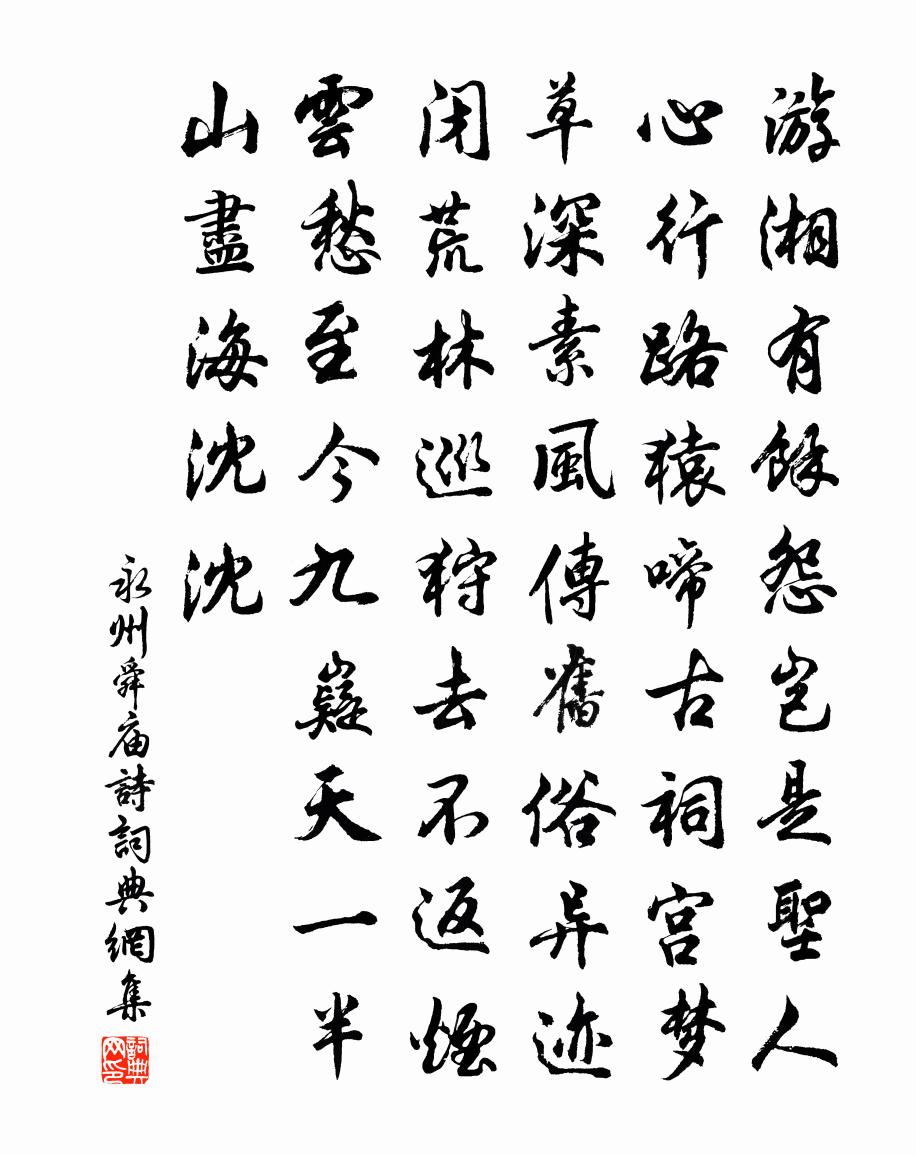 游湘有餘怨岂是聖人
心行路猿啼古祠宫梦
草深素風傳舊俗异迹
闭荒林巡狩去不返煙
雲愁至今九嶷天一半
山盡海沈沈
永州舜庙詩詞典網集
詞典网印